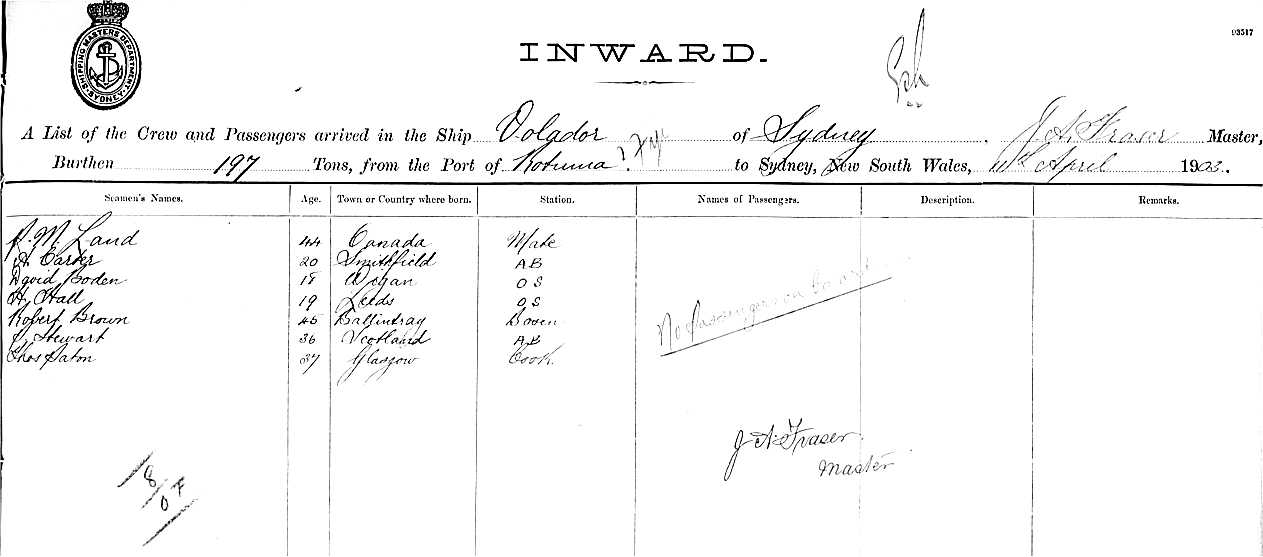 SHIPPING MASTERS DEPARTMENT. SYDNEY.
93517
INWARD.
Sch
A List of the Crew and Passengers arrived in the Ship Volador of Sydney. J A Fraser Master,
Burthen 197 Tons, from the Port of Rotuma. to Sydney, New South Wales, April 1903.
Seamen's Names. Age. Town or Country where born. Station. Names of Passengers. Description. Remarks.
M. Land 44 Canada Mate
A. Carter 20 Smithfield AB
David Boden 18 Wigan OS
H. Hall 19 Leeds OS
Robert Brown 45 Ballintray Bosen
J. Stewart 36 Scotland AB
Chos Paton 37 Glasgow Cook
No Passengers on Board
J A Fraser
Master
8/0